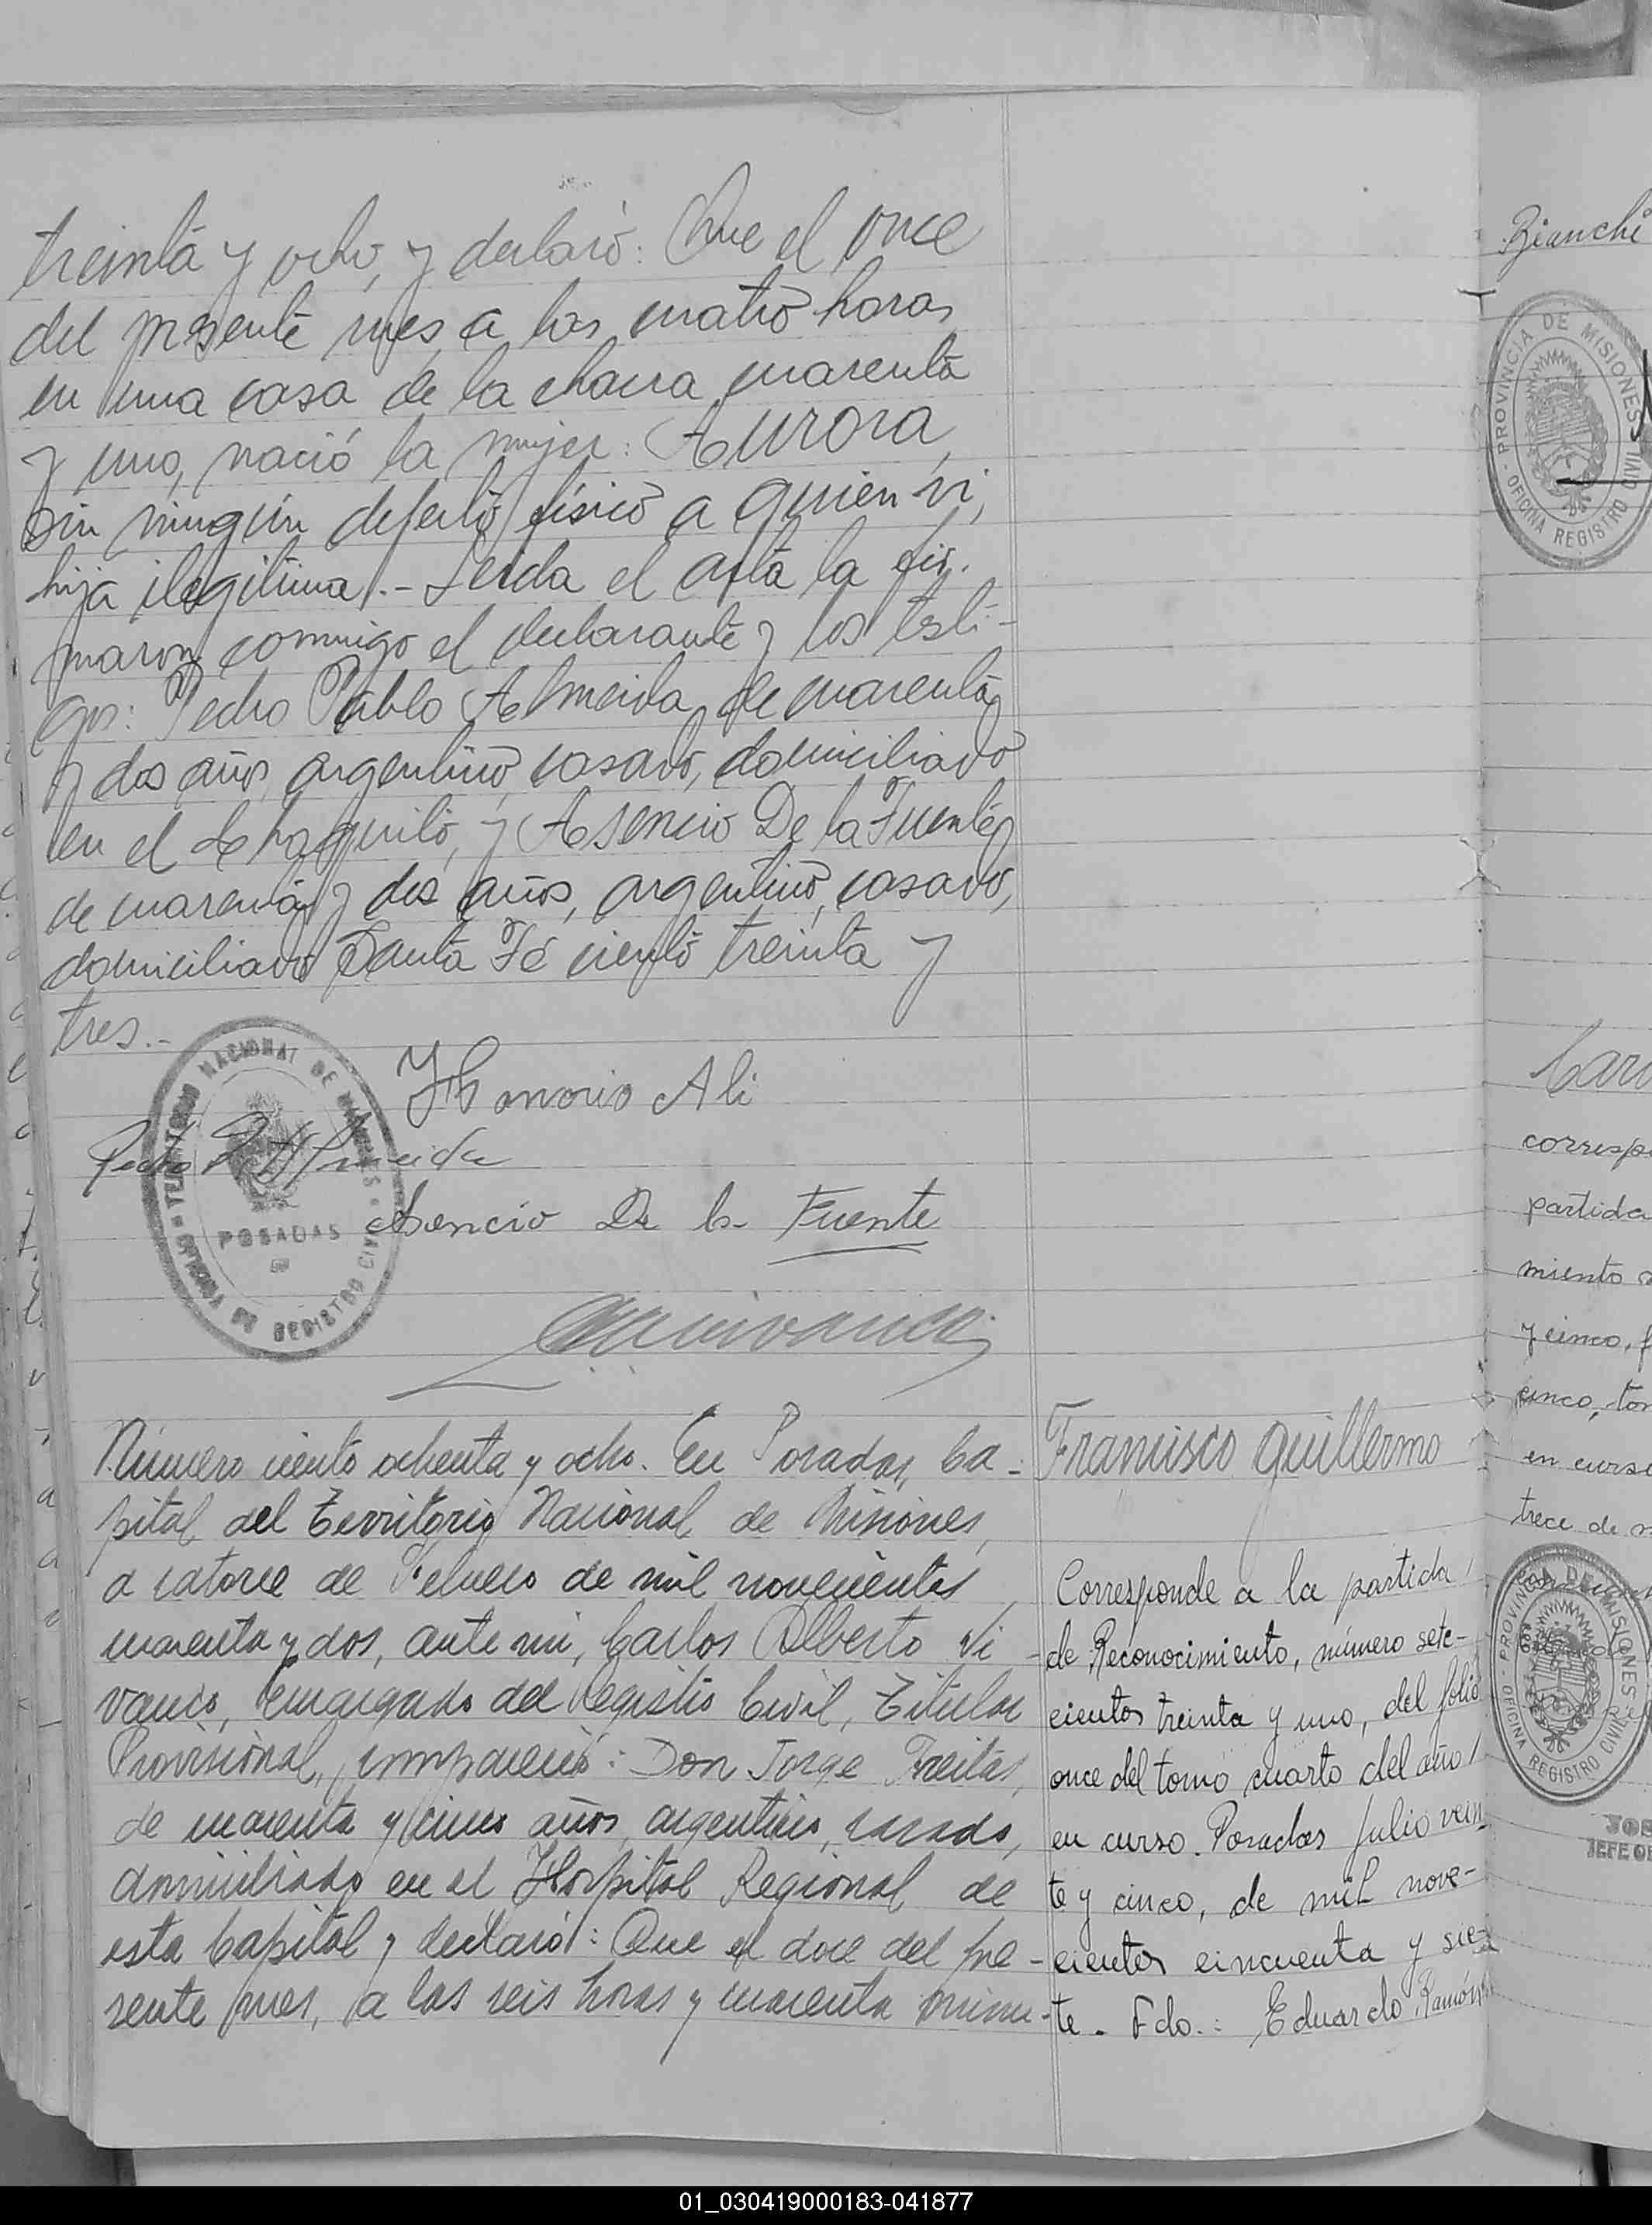 treinta y ocho, y declaró: Que el once
del presente mes, a las cuatro horas,
en una casa de la chacra cuarenta
y uno, nació la mujer: AURORA,
sin ningún defecto físico a quien vi,
hija ilegítima.- Leida el acta la fir-
maron conmigo el declarante y los testi-
gos: Pedro Pablo Almeida, de cuarenta
y dos años, argentino, casado, domiciliado
en el Chaquito, y Asencio De la Fuente,
de cuarenta y dos años, argentino, casado,
domiciliado Santa Fé ciento treinta y
tres.-
TERRITORIO NACIONAL DE MISIONES
POSADAS
OFICINA DE REGISTRO CIVIL
Honorio Ali
Pedro P. Almeida
Asencio De la Fuente
Número ciento ochenta y ocho. En Posadas, Ca-
pital del Territorio Nacional de Misiones,
a catorce de Febrero de mil novecientos
cuarenta y dos, ante mi, Carlos Alberto Vi-
vanco, Encargado del Registro Civil, Titular
Provisional, compareció: Don Jorge Freitas,
de cuarenta y cinco años, argentino, casado,
domiciliado en el Hospital Regional de
esta Capital y declaró: Que el doce del pre-
sente mes, a las seis horas y cuarenta minu-
Francisco Guillermo
Corresponde a la partida
de Reconocimiento, número sete-
cientos treinta y uno, del folio
once del tomo cuarto del año
en curso. Posadas Julio vein
te y cinco, de mil nove-
cientos cincuenta y sie-
te. Fdo.: Eduardo Ramón
Bianchi
PROVINCIA DE MISIONES
OFICINA REGISTRO CIVIL
corresp
partida
miento
y cinco, f
cinco, tom
en curso
trece de
PROVINCIA DE MISIONES
OFICINA REGISTRO CIVIL
JOS
JEFE OF
01_030419000183-041877